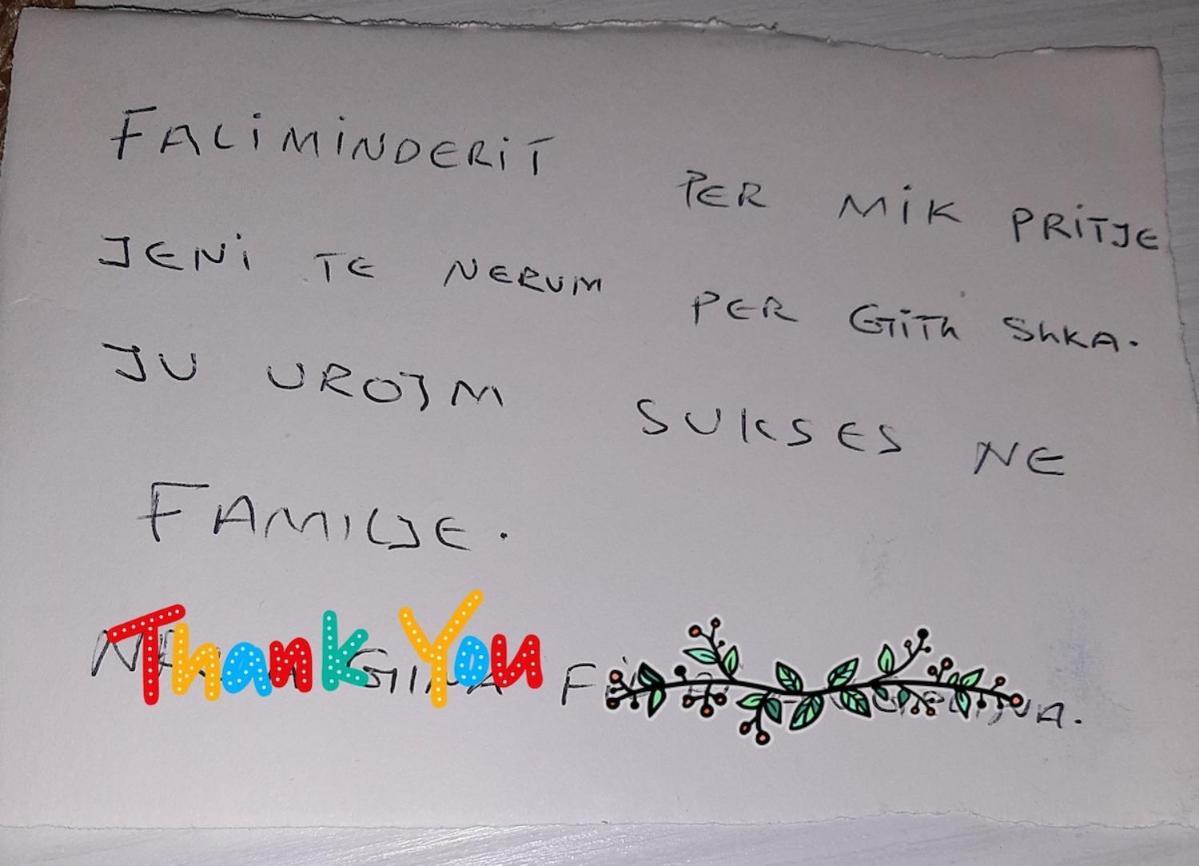 FALIMINDERIT PER MIK PRITJE
JENI TE NERUM PER GJITh ShKA.
JU UROJM SUKSES NE
FAMILJE.
Thank You